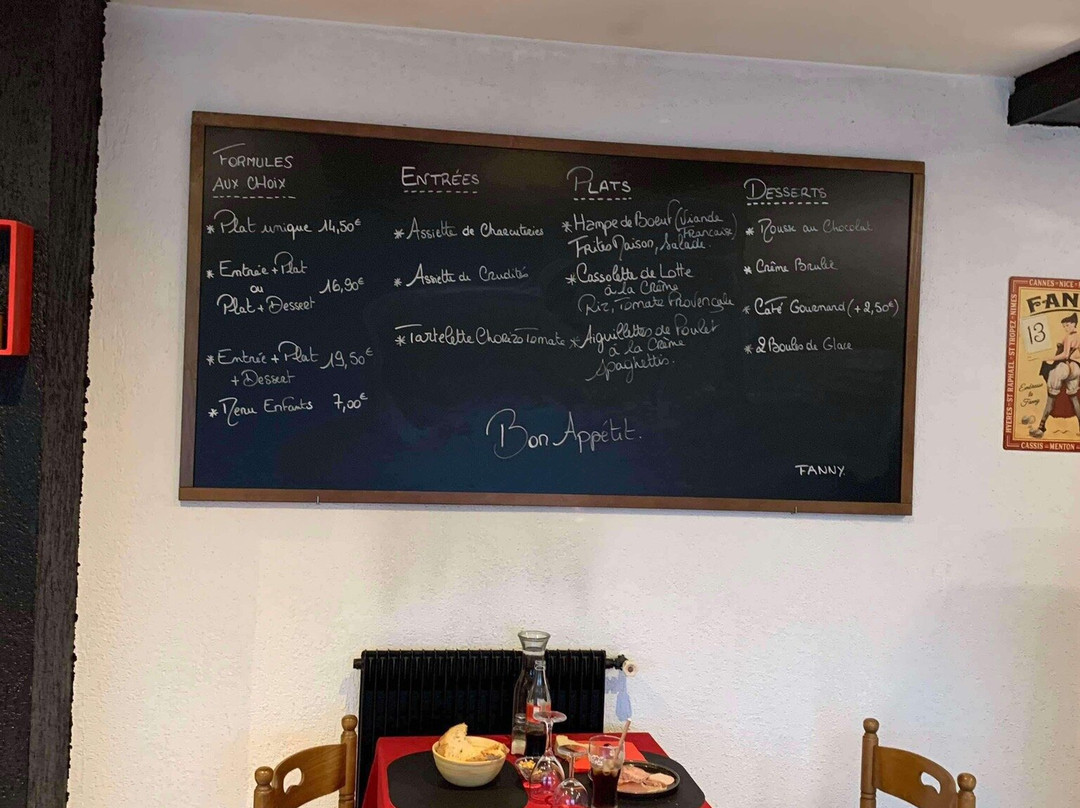 FORMULES
AUX CHOIX
* Plat unique 14,50€
* Entrée + Plat
ou
16,90€
Plat + Dessert
* Entrée + Plat 19,50€
+ Dessert
* Menu Enfants 7,00€
ENTRÉES
* Assiette de Charcuteries
* Assiette de Crudités
* Tartelette Chorizo Tomate
PLATS
* Hampe de Boeuf (Viande
Française)
Frites Maison, Salade.
* Cassolette de Lotte
à la Crème
Riz, Tomate Provençale
* Aiguillettes de Poulet
à la Crème
Spaghettis.
DESSERTS
* Mousse au Chocolat
* Crème Brulée
* Café Gourmand (+2,50€)
* 2 Boules de Glace
Bon Appétit.
FANNY.
CANNES - NICE
HYERES - ST RAPHAEL - ST TROPEZ - NIMES
FAN
13
Fanny
CASSIS - MENTON